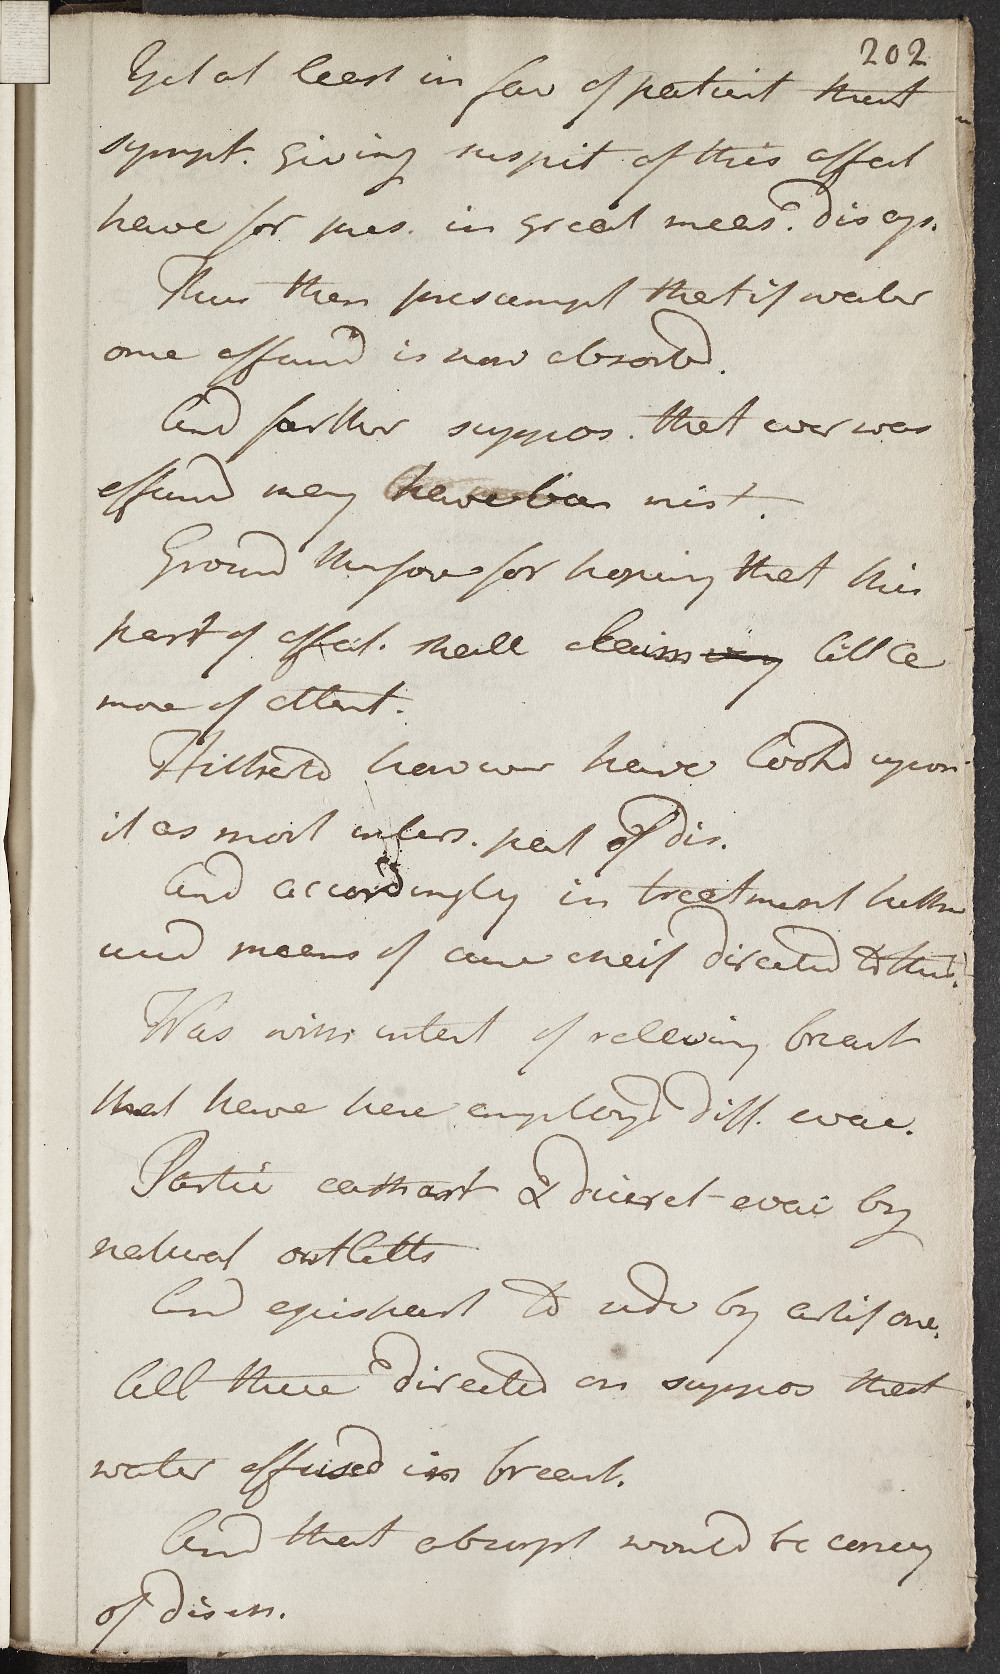 202
Yet at least in fav of patient that
sympt. giving suspit of this affect
have for pres. in great meas. disap.
Thus then presumpt that if water
once effused is now absorbd.
And farther suppos. that ever was
effused may have been mist.
Ground therefore for hoping that this
part of affect. shall claim very little
more of attent.
Hitherto however have lookd upon
it as most inters. part of dis.
And accordingly in treatment hitherto
used means of cure cheif directed to this.
Was with intent of releiving breast
that have here employd diff. evac.
Partic cathart & diuret evac by
natural outletts
And epispast to indu by artif one.
All these directed on suppos that
water effused in breast.
And that absorpt would be curing
of disea.